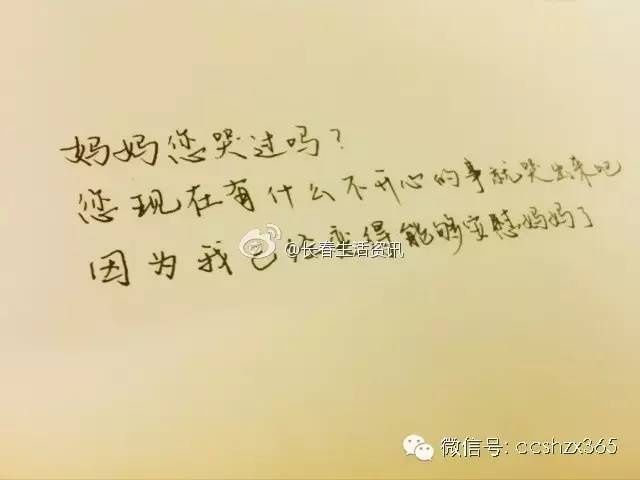 妈妈您哭过吗？
您现在有什么不开心的事就哭出来吧
因为我已经变得能够安慰妈妈了
@长春生活资讯
微信号: ccshzx365